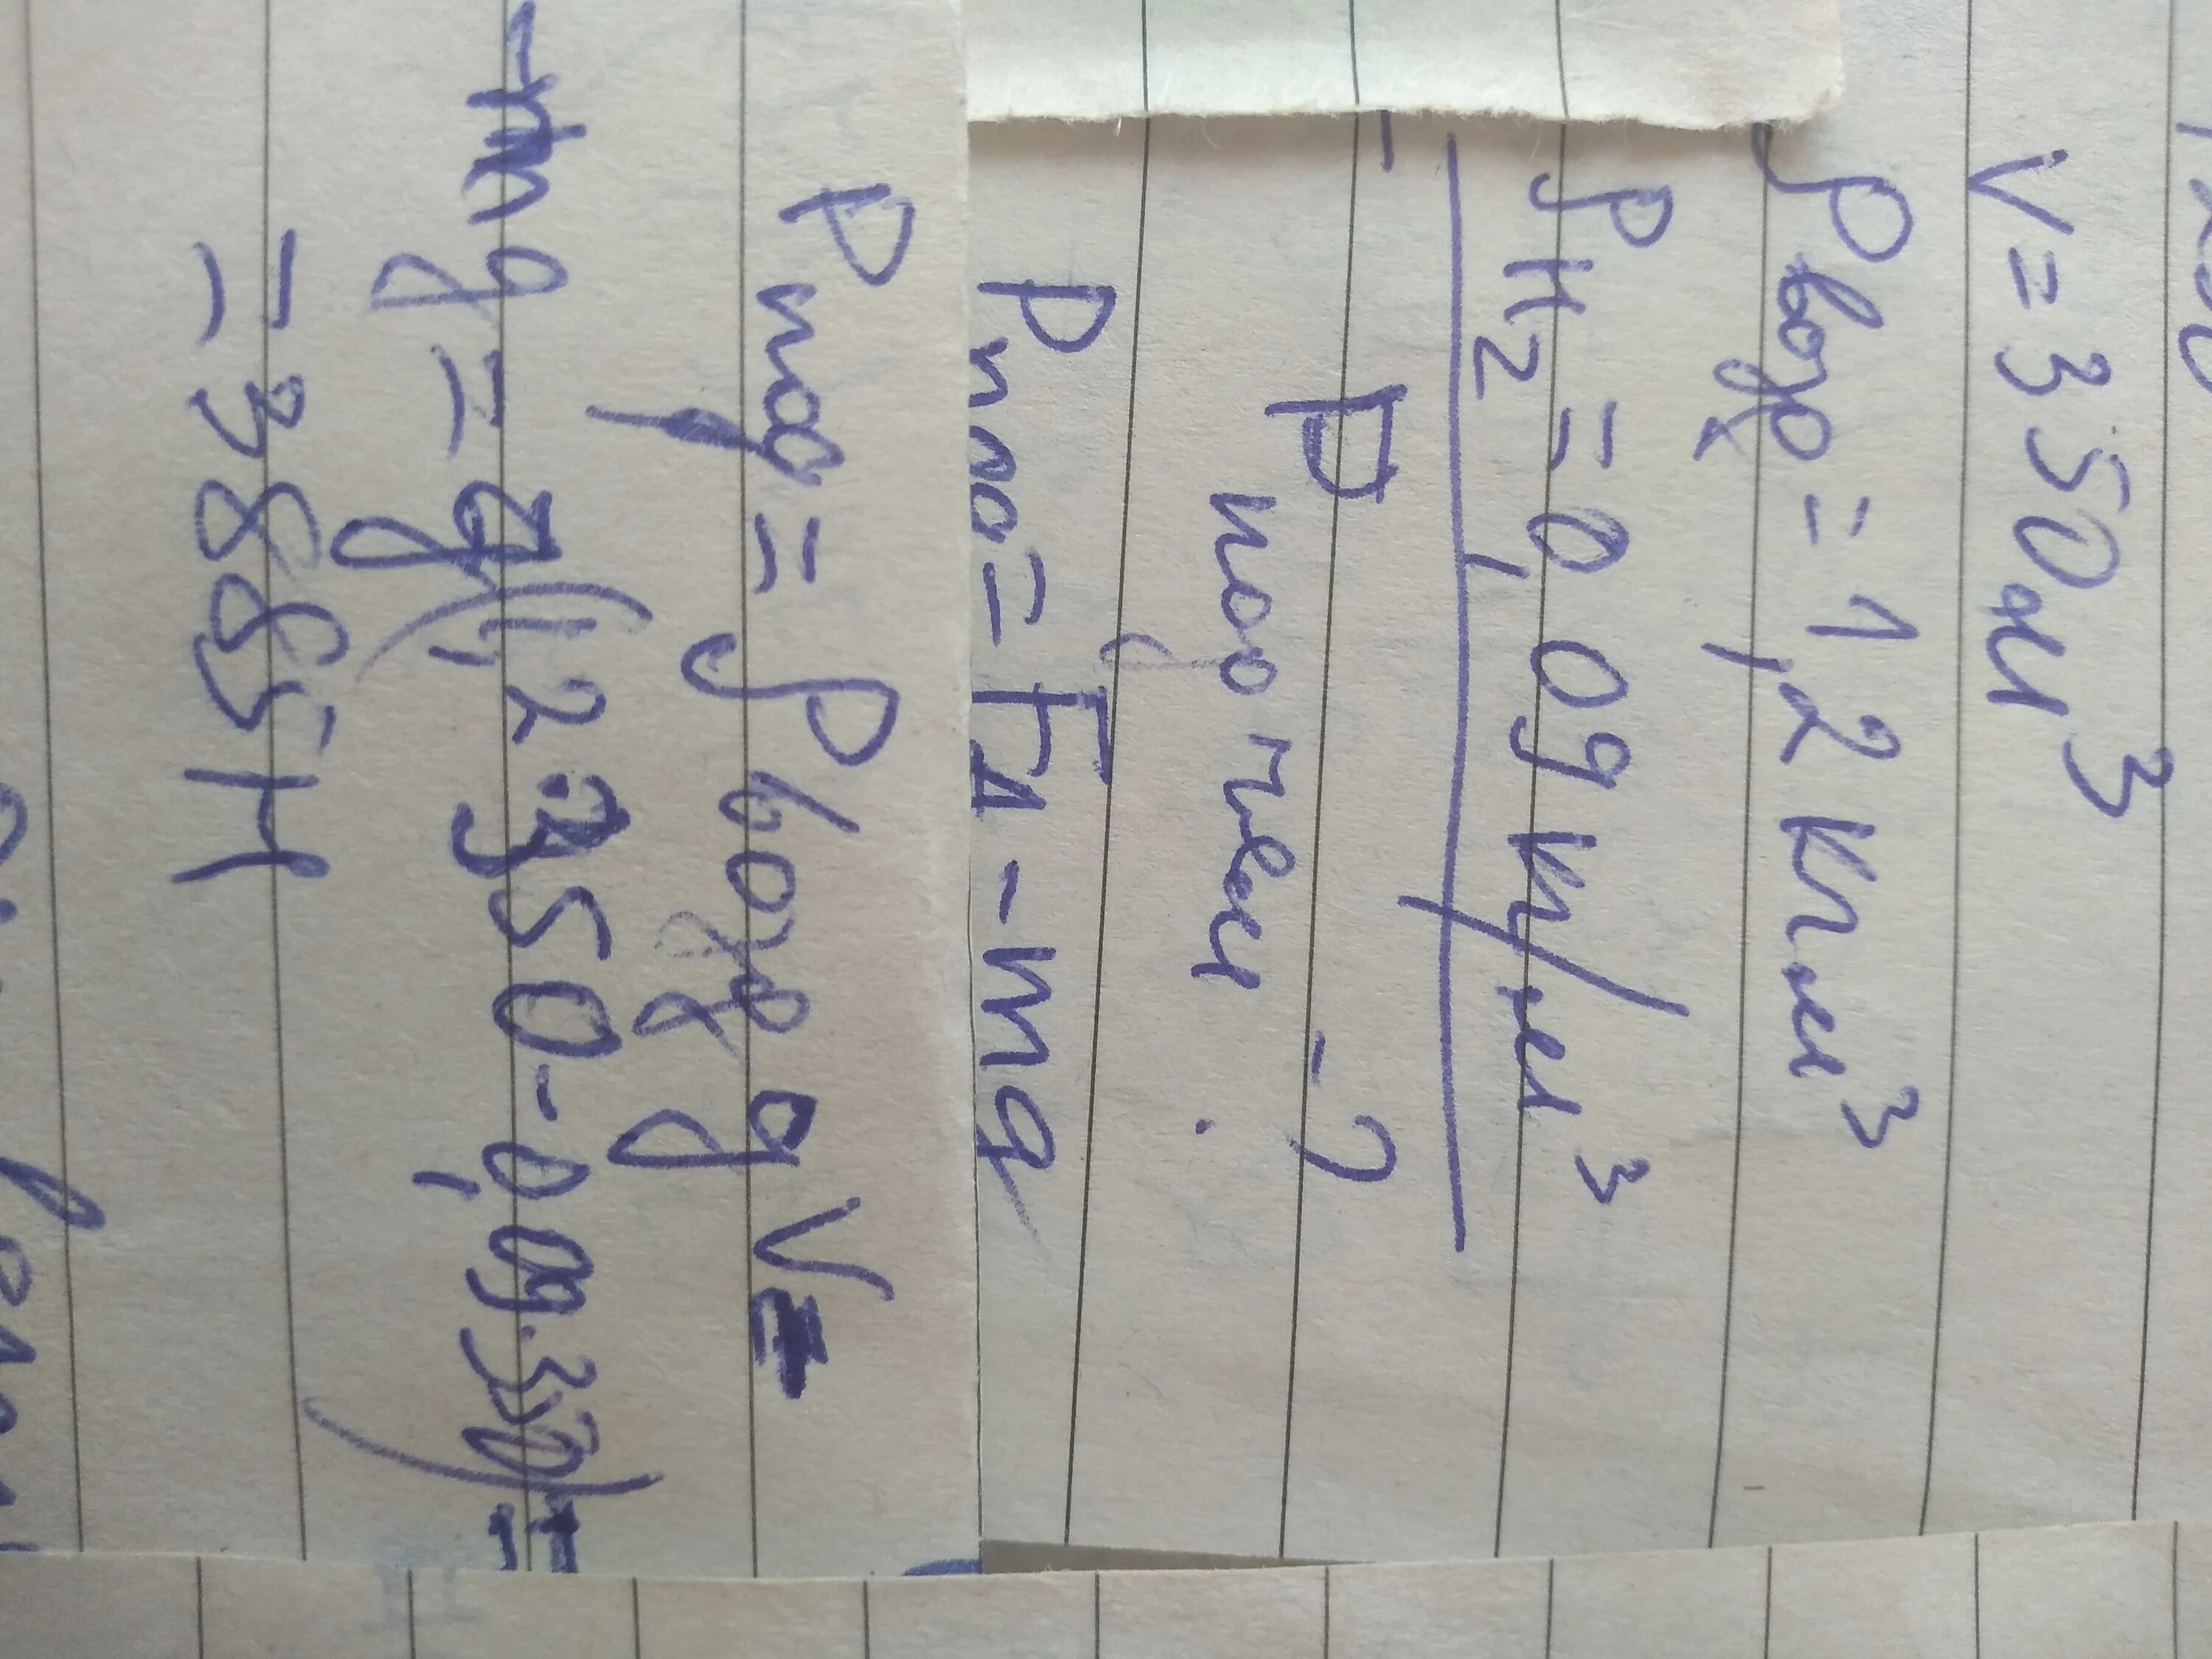 V = 350 м³
ρ возд = 1,2 кг м³
ρ H₂ = 0,09 кг/м³
P подъем. - ?
Pпод = Fд - mg
Pпод = ρ возд g V -
- mg = g(1,2 · 350 - 0,09 · 350) =
= 3885 Н